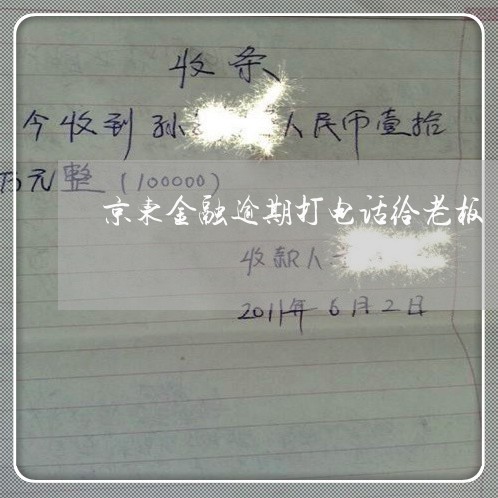 收条
今收到孙 人民币壹拾
万元整（100000）
京东金融逾期打电话给老板
收款人
2011年6月2日